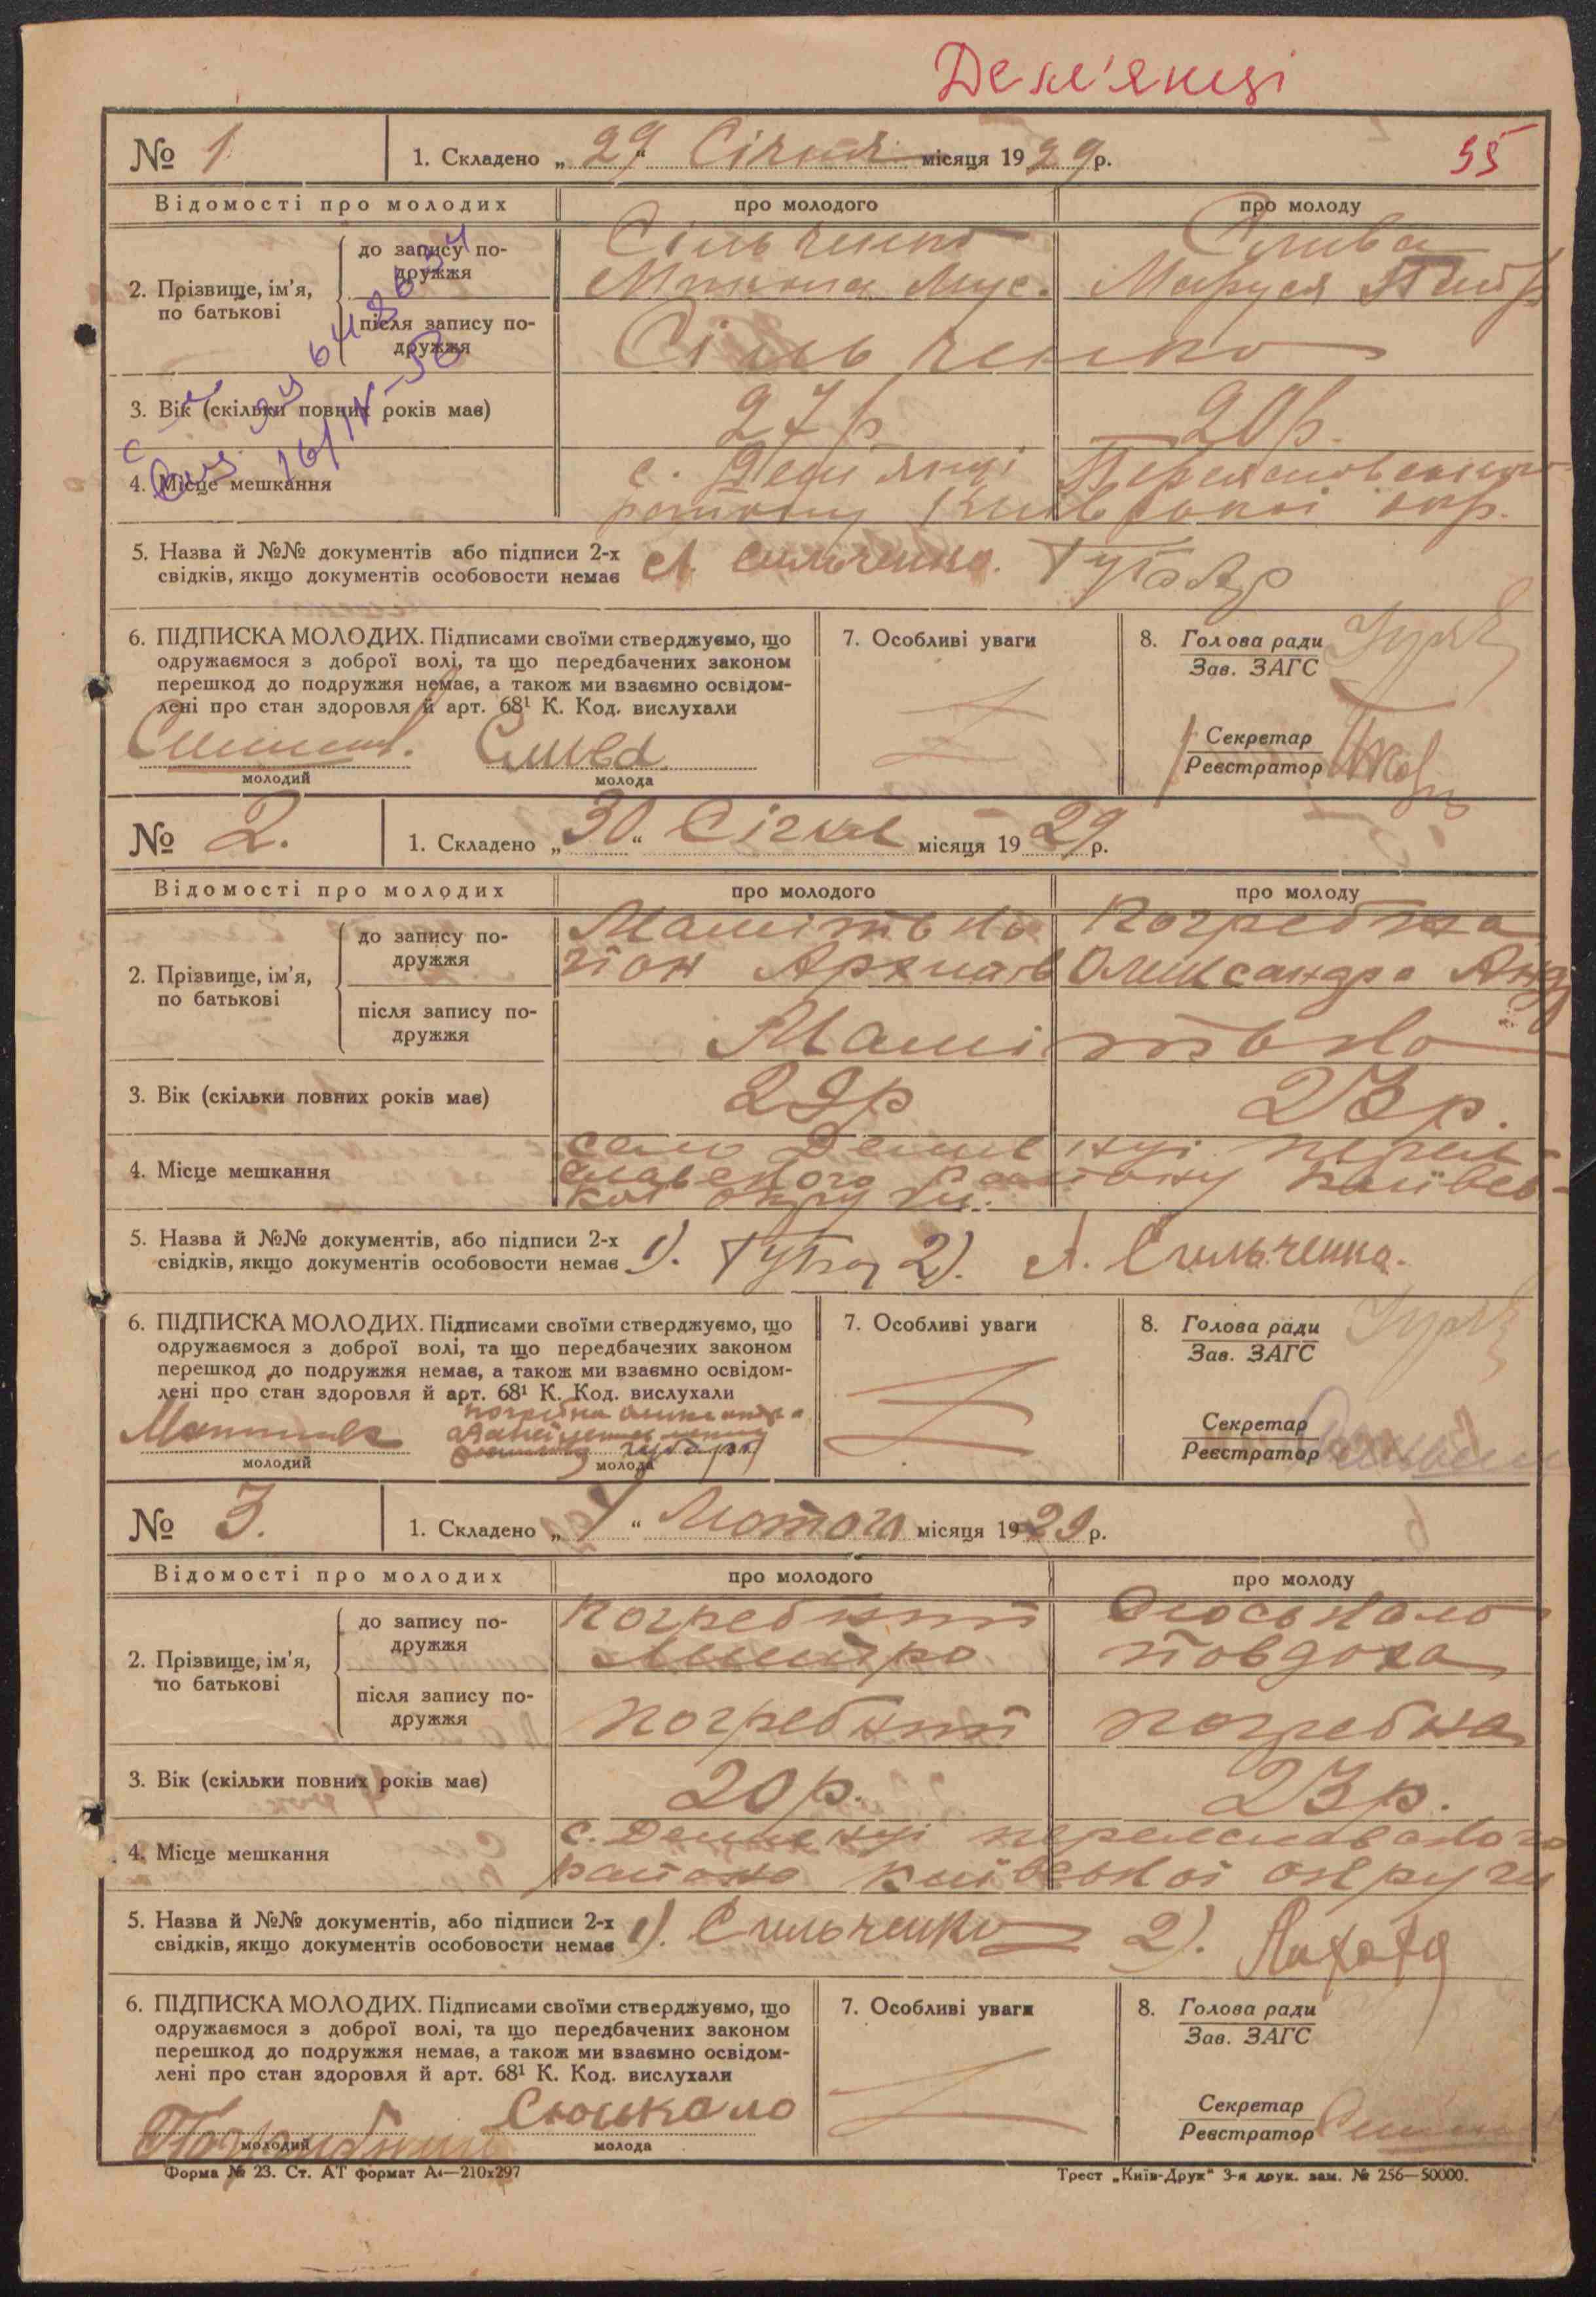 Дем'янці
55
№ 1
1. Складено „ 29 “ Січня місяця 1929 р.
Відомості про молодих
про молодого
про молоду
2. Прізвище, ім'я, по батькові
до запису подружжя
Сільченко
Микола Мус.
Слива
Маруся
після запису подружжя
Сільченко
3. Вік (скільки повних років має)
27 р
20 р.
4. Місце мешкання
с. Дем'янці Переяславського
району Київської окр.
5. Назва й №№ документів або підписи 2-х
свідків, якщо документів особовости немає
А. Сильченко. Губар
6. ПІДПИСКА МОЛОДИХ. Підписами своїми стверджуємо, що
одружаємося з доброї волі, та що передбачених законом
перешкод до подружжя немає, а також ми взаємно освідом-
лені про стан здоров'я й арт. 68¹ К. Код. вислухали
Слива
молодий
молода
7. Особливі уваги
8. Голова ради
Зав. ЗАГС
Секретар
Реєстратор
№ 2.
1. Складено „ 30 “ Січня місяця 1929 р.
Відомості про молодих
про молодого
про молоду
2. Прізвище, ім'я, по батькові
до запису подружжя
Погребна
Олександра Анд
після запису подружжя
3. Вік (скільки повних років має)
23 р.
4. Місце мешкання
село Демянці переяс-
лавського району київсь-
кої округи.
5. Назва й №№ документів, або підписи 2-х
свідків, якщо документів особовости немає
1). Губар 2). А. Сильченко.
6. ПІДПИСКА МОЛОДИХ. Підписами своїми стверджуємо, що
одружаємося з доброї волі, та що передбачених законом
перешкод до подружжя немає, а також ми взаємно освідом-
лені про стан здоровля й арт. 68¹ К. Код. вислухали
молодий
молода
7. Особливі уваги
8. Голова ради
Зав. ЗАГС
Секретар
Реєстратор
№ 3.
1. Складено „ “ Лютого місяця 1929 р.
Відомості про молодих
про молодого
про молоду
2. Прізвище, ім'я, по батькові
до запису подружжя
Погребний
Дмитро
Сюськало
Повдоха
після запису подружжя
Погребний
погребна
3. Вік (скільки повних років має)
20 р.
23 р.
4. Місце мешкання
с. Демянці переяславського
району київської округи
5. Назва й №№ документів, або підписи 2-х
свідків, якщо документів особовости немає
1). Сильченко 2).
6. ПІДПИСКА МОЛОДИХ. Підписами своїми стверджуємо, що
одружаємося з доброї волі, та що передбачених законом
перешкод до подружжя немає, а також ми взаємно освідом-
лені про стан здоровля й арт. 68¹ К. Код. вислухали
Погребний
Сюськало
молодий
молода
7. Особливі уваги
8. Голова ради
Зав. ЗАГС
Секретар
Реєстратор
Форма № 23. Ст. АТ формат А4—210х297
Трест „Київ-Друк“ 3-я друк. зам. № 256—50000.